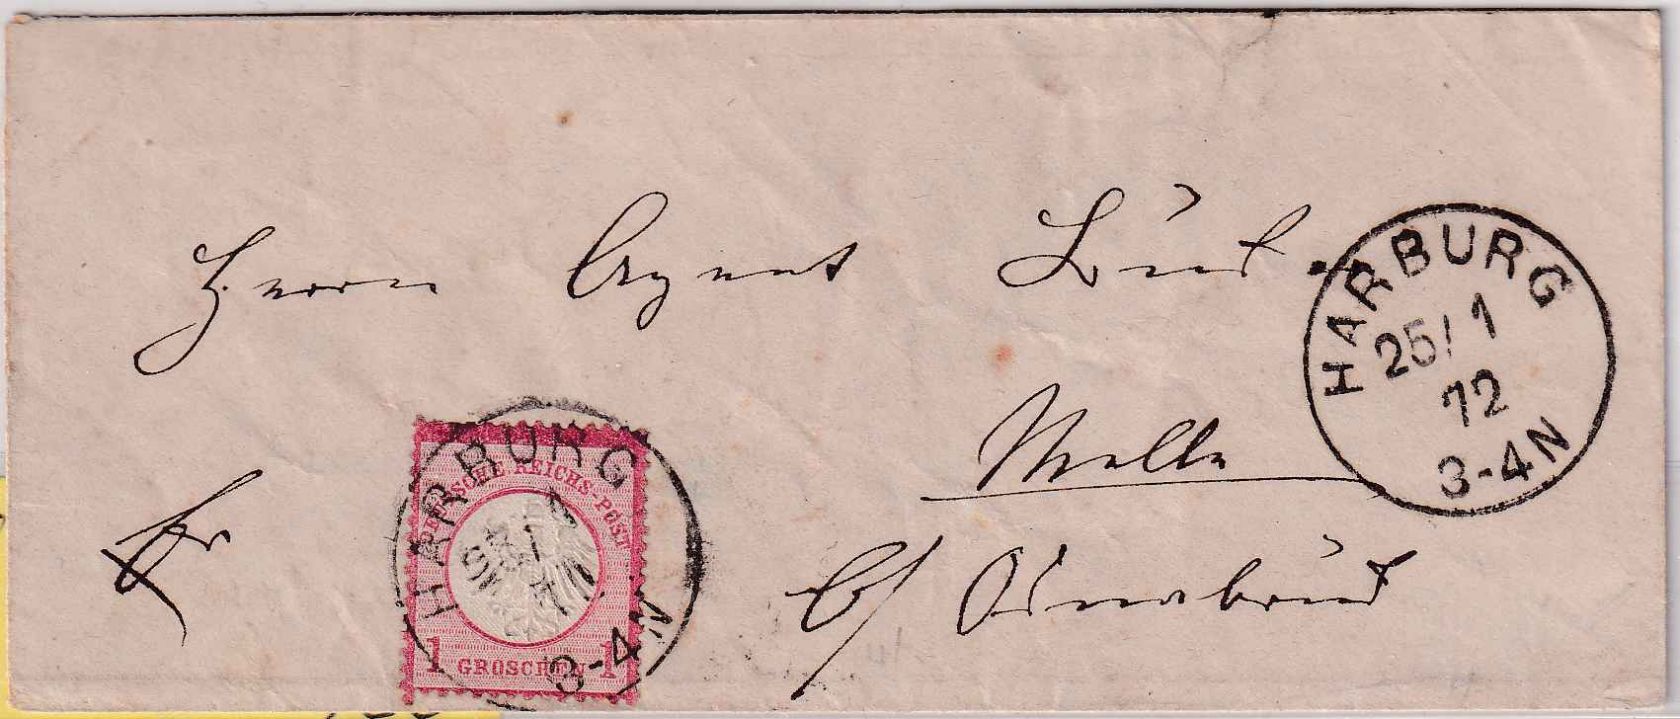 Herrn Agent
HARBURG
25/1
72
3-4N
Melle
Fr
b/ Osnabrück
HARBURG
DEUTSCHE REICHS-POST
3-4N
1 GROSCHEN 1